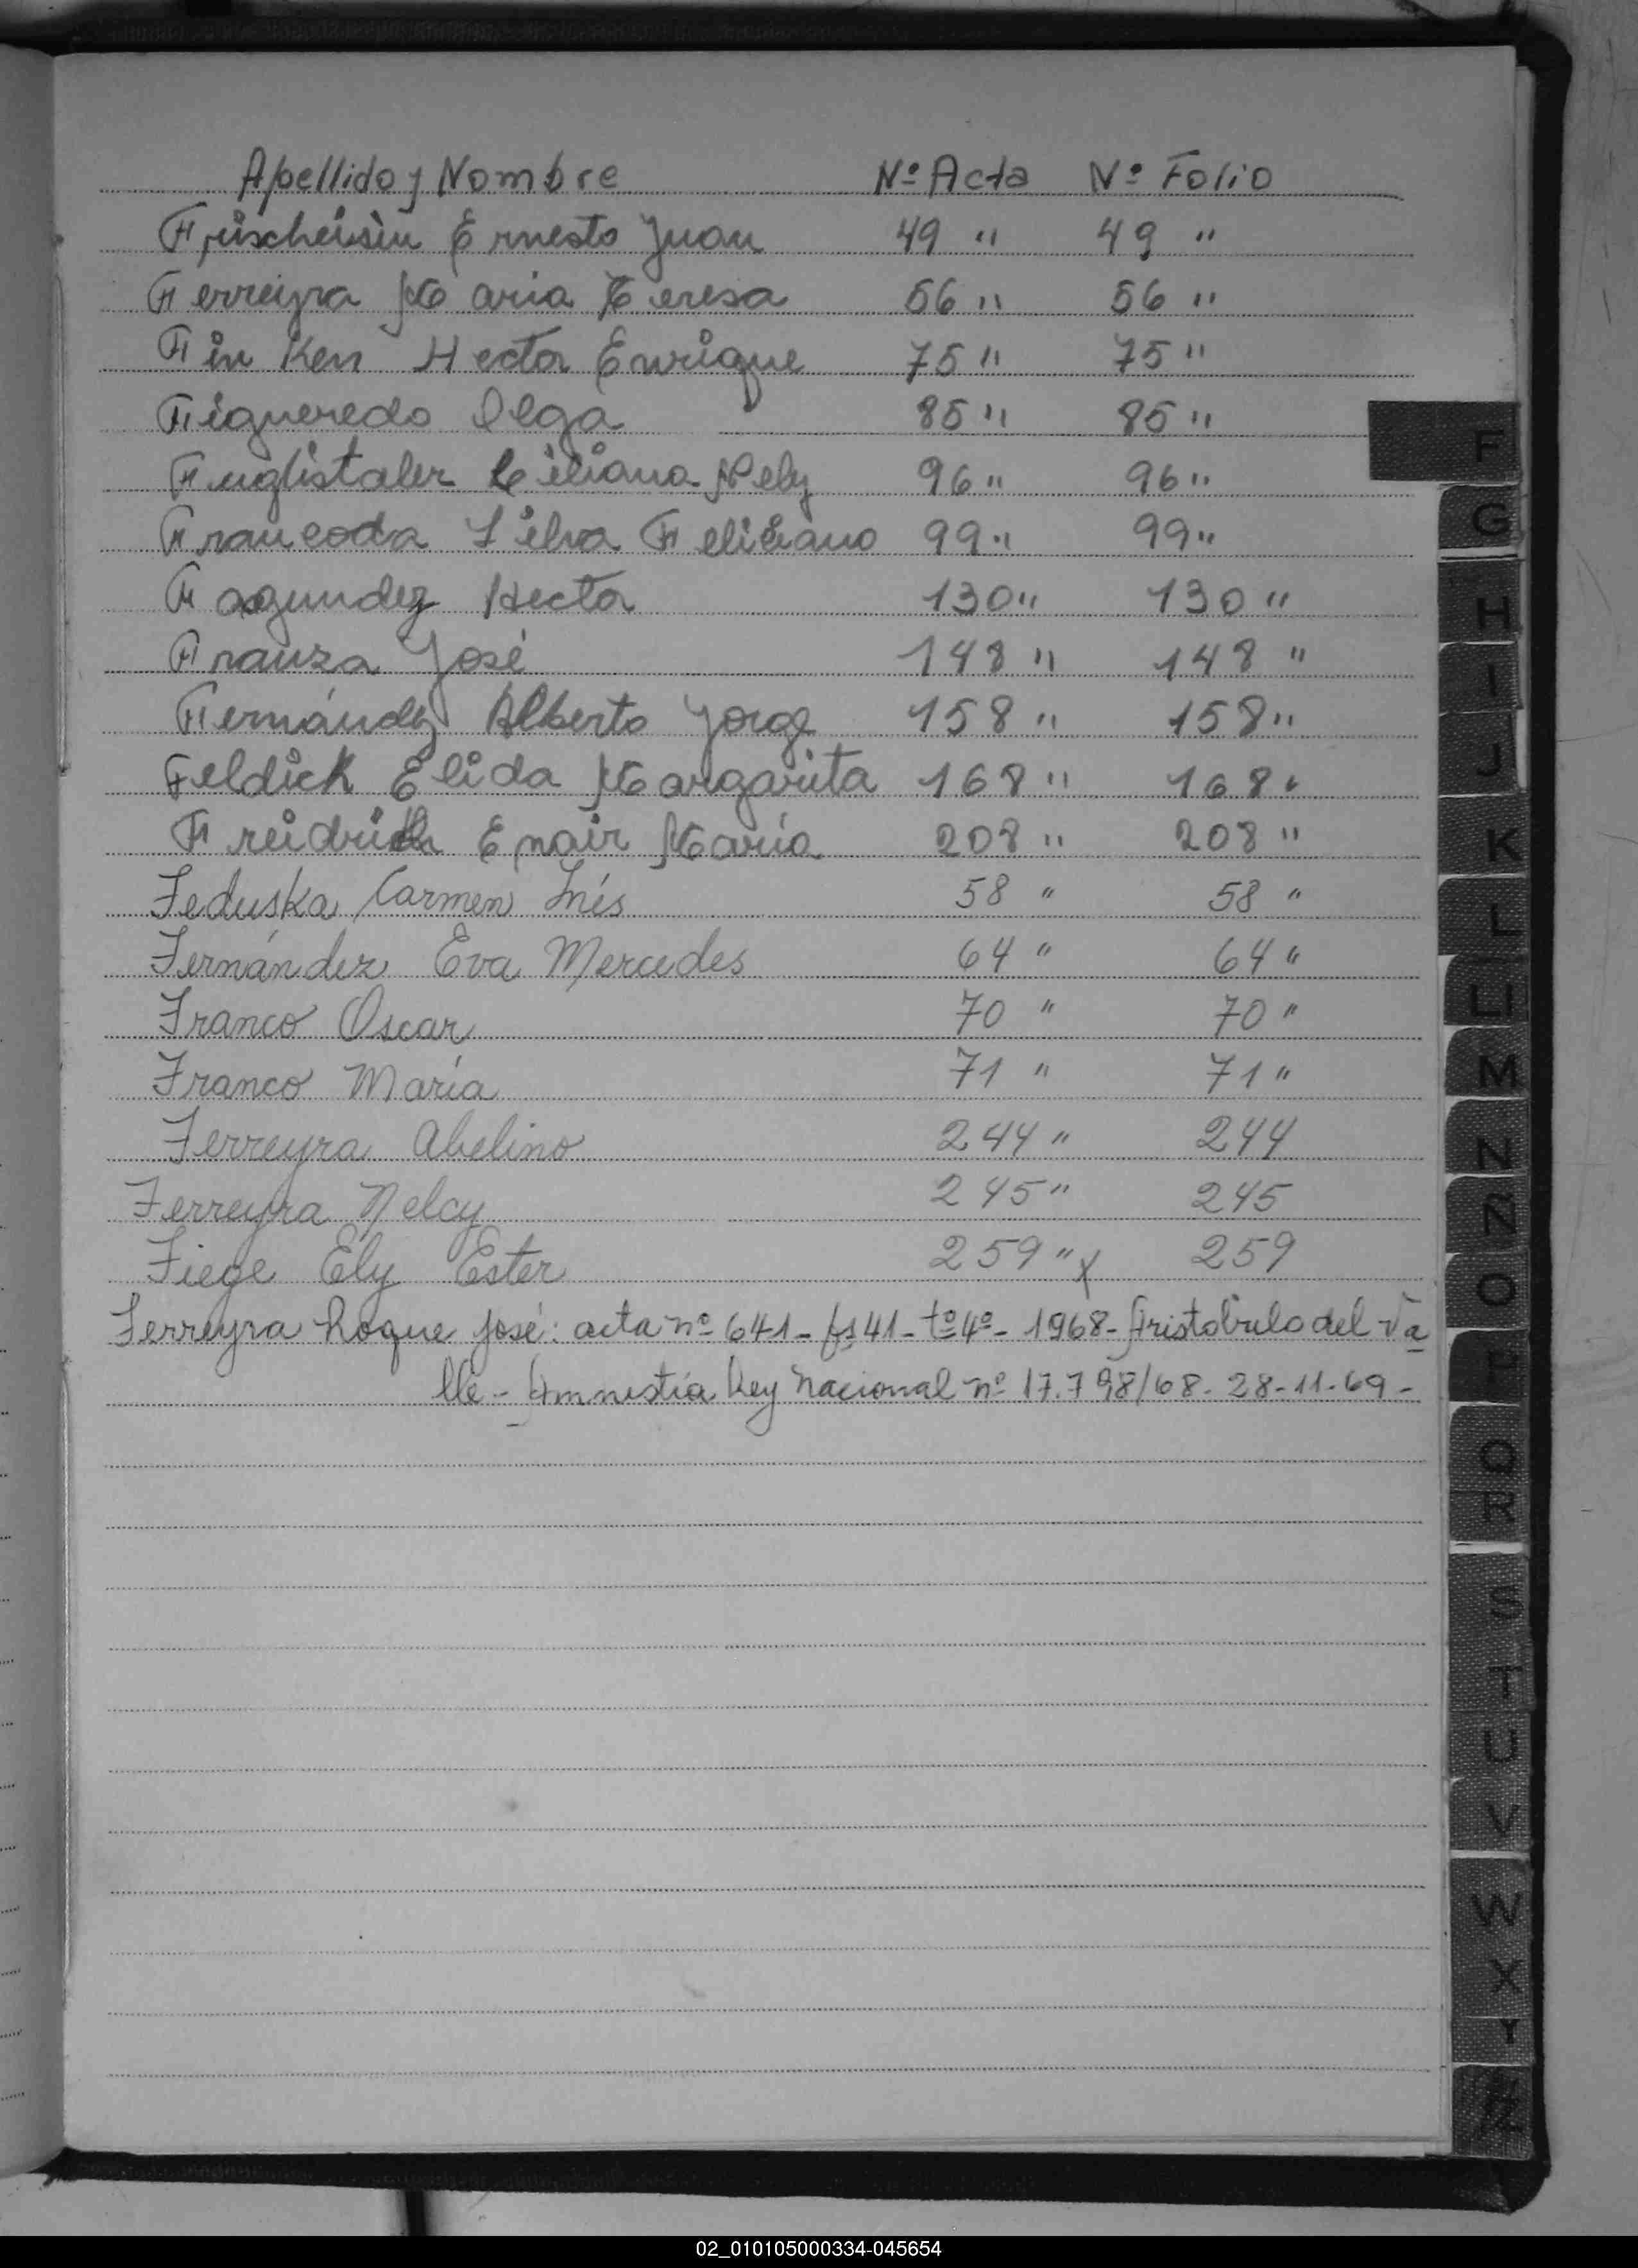 Apellido y Nombre Nº Acta Nº Folio
Frischeisin Ernesto Juan 49 " 49 "
Ferreyra Maria Teresa 56 " 56 "
Fin Ken Hector Enrique 75 " 75 "
Figueredo Olga 85 " 85 "
Fuglistaler Liliana Nely 96 " 96 "
Francoda Silva Feliciano 99 " 99 "
Fagundez Hector 130 " 130 "
Franza José 148 " 148 "
Fernández Alberto Jorge 158 " 158 "
Feldick Elida Margarita 168 " 168 "
Freidrich Enair María 208 " 208 "
Feduska Carmen Inés 58 " 58 "
Fernández Eva Mercedes 64 " 64 "
Franco Oscar 70 " 70 "
Franco María 71 " 71 "
Ferreyra Abelino 244 " 244
Ferreyra Nelcy 245 " 245
Fiege Ely Ester 259 " x 259
Ferreyra Roque José: acta nº 641- fs 41- tº 4º- 1968- Aristóbulo del Va
lle - Amnistía Ley Nacional nº 17.798/68- 28-11-69-
F
G
H
I
J
K
L
Ll
M
N
Ñ
O
P
Q
R
S
T
U
V
W
X
Y
Z
02_010105000334-045654